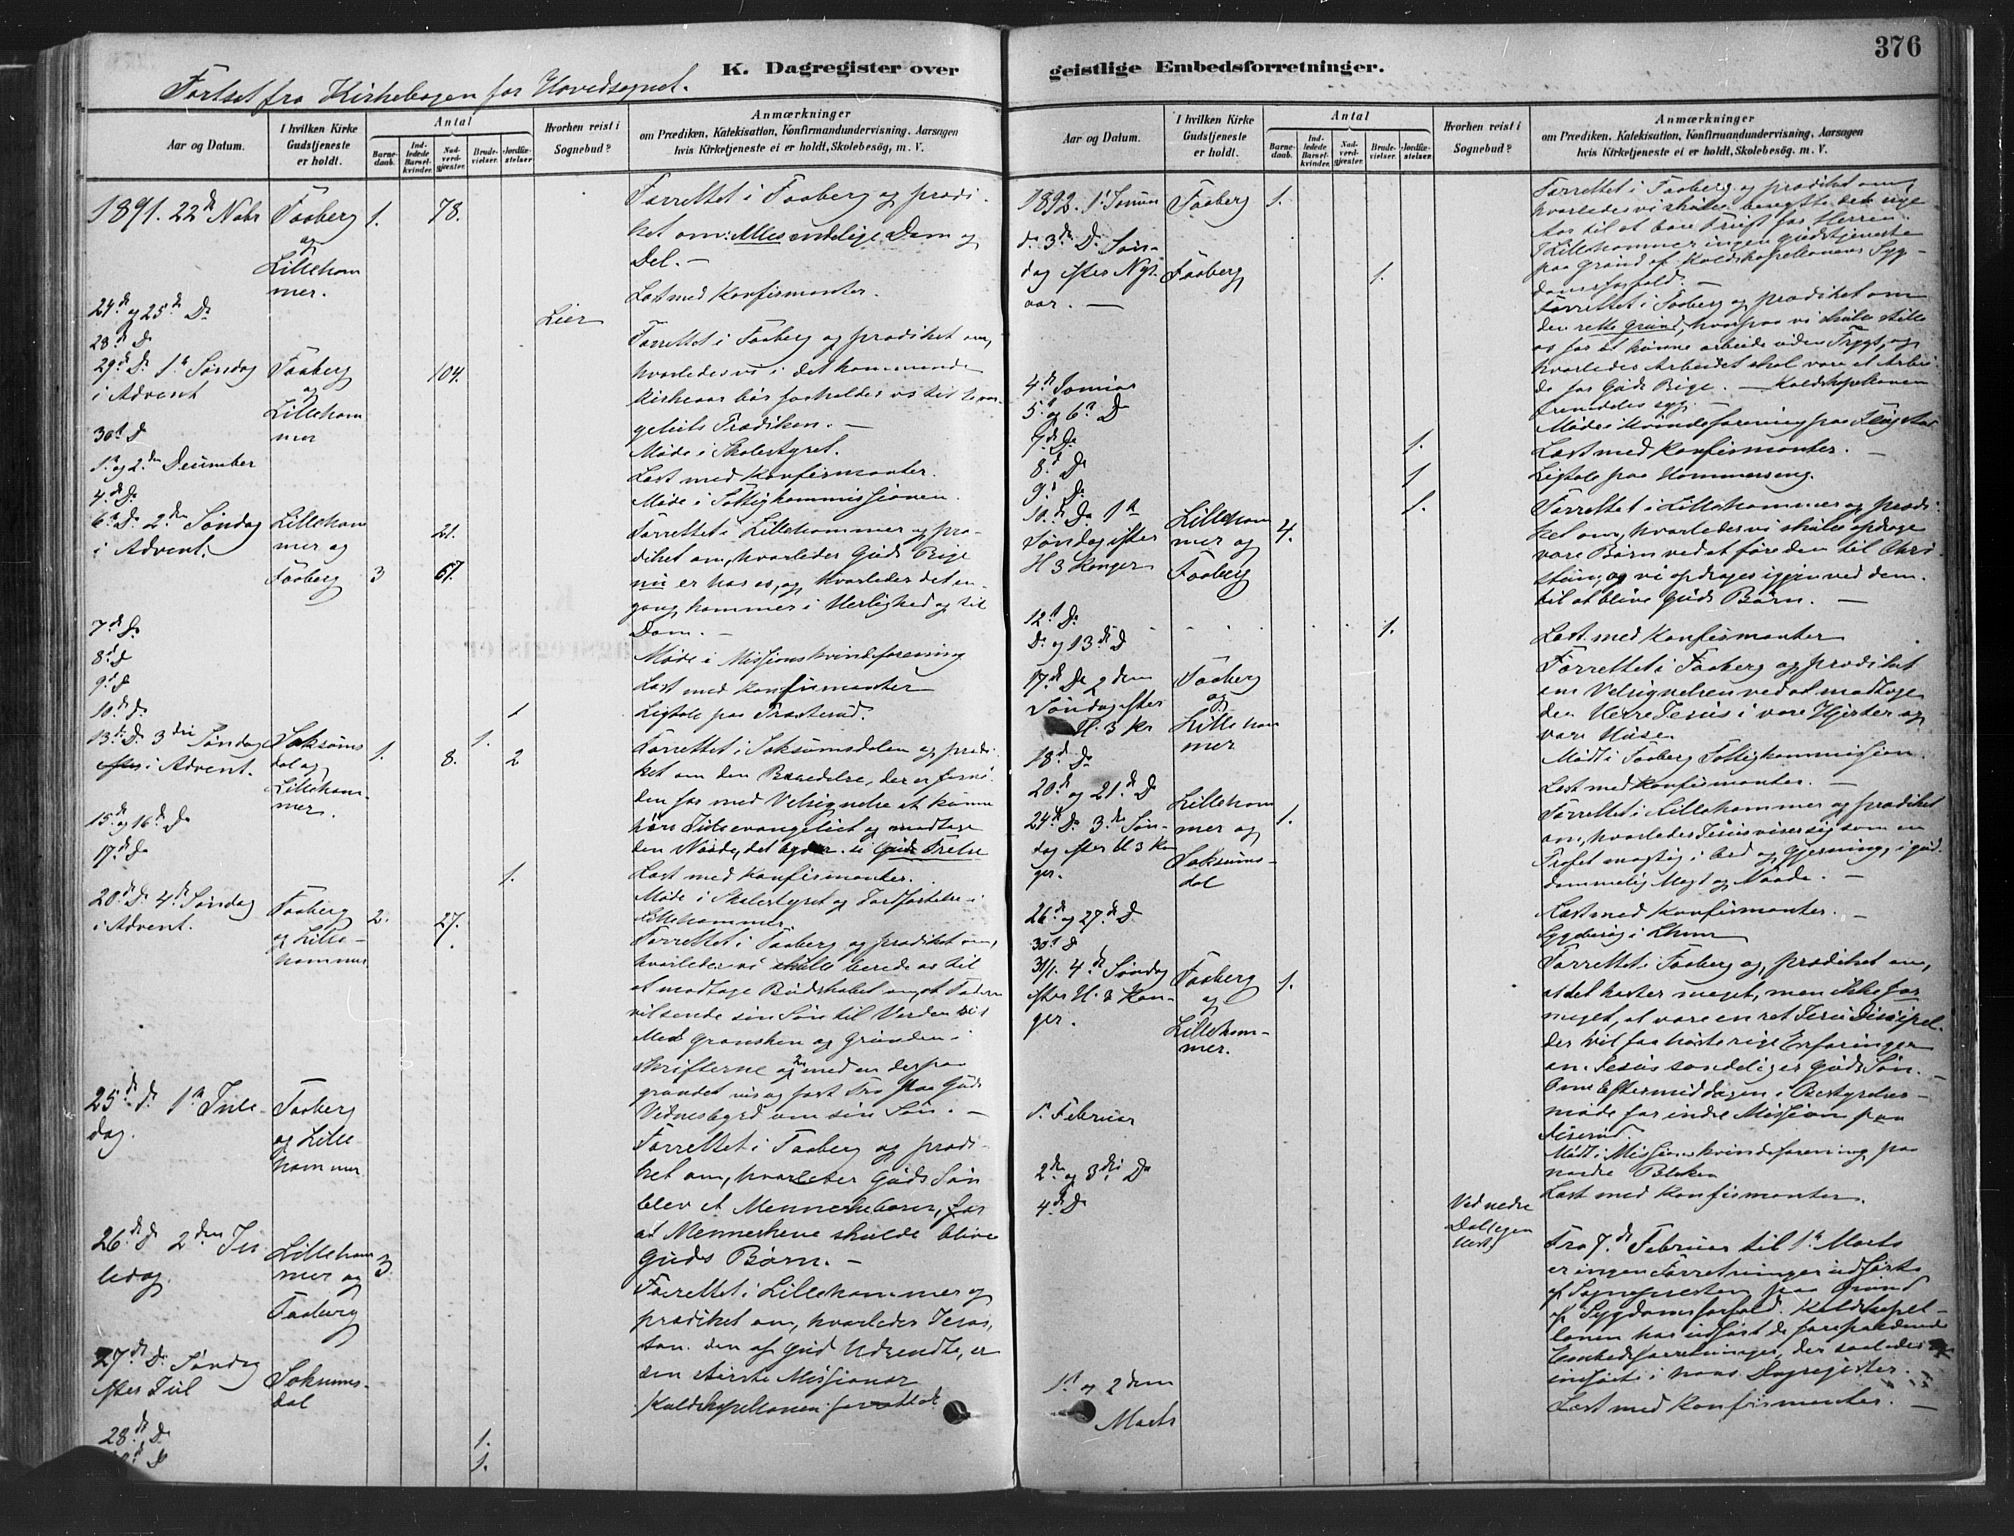 376
K. Dagregister over
geistlige Embedsforretninger.
Fortsat fra Kirkebogen for Hovedsognet.
Aar og Datum.
I hvilken Kirke Gudstjeneste er holdt.
Antal
Barnedaab.
Indledede Barselkvinder.
Nadverdgjester.
Brudevielser.
Jordfæstelser.
Hvorhen reist i Sognebud?
Anmærkninger
om Prædiken, Katekisation, Konfirmandundervisning, Aarsagen
hvis Kirketjeneste ei er holdt, Skolebesøg, m. V.
1891. 22de Nobr
Faaberg
og
Lilleham
mer.
1.
78.
Forrettet i Faaberg og prædi-
ket om: Alles endelige Dom og
Del. —
24de og 25de Do
Læst med Konfirmanter.
28de Do
Lier
29de Do 1ste Søndag
i Advent
Faaberg
og
Lilleham
mer
104.
Forrettet i Faaberg og prædiket om,
hvorledes vi i det kommende
Kirkeaar bør forholde os til Evan-
geliets Prædiken. —
30te Do
Møde i Skolestyret.
1ste og 2den December
Læst med Konfirmanter.
4de Do
Møde i Fattigkommissionen.
6te Do 2den Søndag
i Advent.
Lilleham
mer og
Faaberg
3
21.
67.
Forrettet i Lillehammer og præ-
diket om, hvorledes Guds Rige
nu er hos os, og hvorledes det en-
gang kommer i Herlighed og til
Dom. —
7de Do
Møde i Missionskvindeforening
8de Do
Læst med Konfirmanter
9de Do
Ligtale paa
10de Do
1
13de Do 3die Søndag
i Advent.
Saksums
dal og
Lilleham-
mer.
1.
8.
1.
2
Forrettet i Saksumsdalen og prædi-
ket om den Beredelse, der er fornø-
den for med Velsignelse at kunne
høre Juleevangeliet og modtage
den Naade, det byder i Guds Frelse
15de og 16de Do
Læst med Konfirmanter.
17de Do
1.
Møde i Skolestyret og Jordfæstelse i
Lillehammer
20de Do 4de Søndag
i Advent.
Faaberg
og Lille-
hammer
2.
27.
Forrettet i Faaberg og prædiket om,
hvorledes vi skulle berede os til
at modtage Budskabet om, at Faderen
vil sende sin Søn til Verden
Med Gransken og Grunden i
Skrifterne og med en derpaa
grundet vis og fast Tro paa Guds
Vidnesbyrd om sin Søn. —
25de Do 1ste Jule-
dag.
Faaberg
og Lille
hammer
Forrettet i Faaberg og prædi-
ket om, hvorledes Guds Søn
blev et Menneskebarn, for
at Menneskene skulde blive
Guds Børn. —
26de Do 2den Ju
ledag.
Lilleham
mer og
Faaberg
3
Forrettet i Lillehammer og
prædiket om, hvorledes Jesus,
som den af Gud Udsendte, er
den største Missionær
27de Do Søndag
efter Jul
Saksums-
dal
Kaldskapellanen forrettede
28de Do
1.
Do
1.
Aar og Datum.
I hvilken Kirke Gudstjeneste er holdt.
Antal
Barnedaab.
Indledede Barselkvinder.
Nadverdgjester.
Brudevielser.
Jordfæstelser.
Hvorhen reist i Sognebud?
Anmærkninger
om Prædiken, Katekisation, Konfirmandundervisning, Aarsagen
hvis Kirketjeneste ei er holdt, Skolebesøg, m. V.
1892. 1ste Januar
Faaberg
1.
Forrettet i Faaberg og prædiket om,
hvorledes vi skulle benytte det nye
Aar til at bære Frugt for Herren
I Lillehammer ingen Gudstjeneste
paa Grund af Kaldskapellanens Syg-
domsforfald. —
d. 3die Do Søn-
dag efter Nyt-
aar. —
Faaberg
1.
Forrettet i Faaberg og prædiket om
den rette Grund, hvorpaa vi skulle stille
os for at kunne arbeide uden Frygt, og
hvorledes Arbeidet skal være et Arbei-
de for Guds Rige. — Kaldskapellanen
fremdeles syg.
4de Januar
Møde i Kvindeforening paa
5te og 6te Do
Læst med Konfirmanter. —
7de Do
1.
Ligtale paa Hammerseng.
8de Do
1
9de Do
1.
10de Do 1ste
Søndag efter
H 3 Konger
Lilleham
mer og
Faaberg
4.
Forrettet i Lillehammer og prædi-
ket om, hvorledes vi skulle opdrage
vore Børn ved at føre dem til Chri-
stum, og vi opdrages igjen ved dem
til at blive Guds Børn. —
12te Do
Do og 13de Do
1.
Læst med Konfirmanter
17de Do 2den
Søndag efter
H. 3 Kr
Faaberg
og
Lilleham
mer
Forrettet i Faaberg og prædiket
om Velsignelsen ved at modtage
den Herre Jesus i vore Hjerter og
vore Huse
18de Do
Mødt i Faaberg Fattigkommission.
20de og 21de Do
Læst med Konfirmanter. —
24de Do 3die Søn-
dag efter H 3 Kon
ger.
Lilleham
mer og
Saksums-
dal
1.
Forrettet i Lillehammer og prædiket
om, hvorledes Jesus viser sig som en
Profet mægtig i Ord og Gjerning, i gud-
dommelig Magt og Naade. —
26de og 27de Do
Læst med Konfirmanter. —
30te Do
Sygebesøg i
31/1. 4de Søndag
efter H. 3 Kon-
ger.
Faaberg
og
Lilleham-
mer.
1.
Forrettet i Faaberg og prædiket om,
at det koster meget, men ikke for
meget, at være en ret Jesu Discipel.
der vil faa høste rige Erfaringer
om Jesus sandelig er Guds Søn. —
Om Eftermiddagen i Bestyrelses-
møde for indre Mission paa
1. Februar
Mødt i Missionskvindeforening paa
nordre
2den og 3die Do
Læst med Konfirmanter.
4de Do
Ved nedre
Fra 7de Februar til 1ste Marts
er ingen Forretninger udførte
af Sognepresten paa Grund
af Sygdomsforfald. Kaldskapel-
lanen har udført de forefaldende
Embedsforretninger, der saaledes er
indført i hans Dagregister. —
1ste og 2den
Marts
Læst med Konfirmanter. —